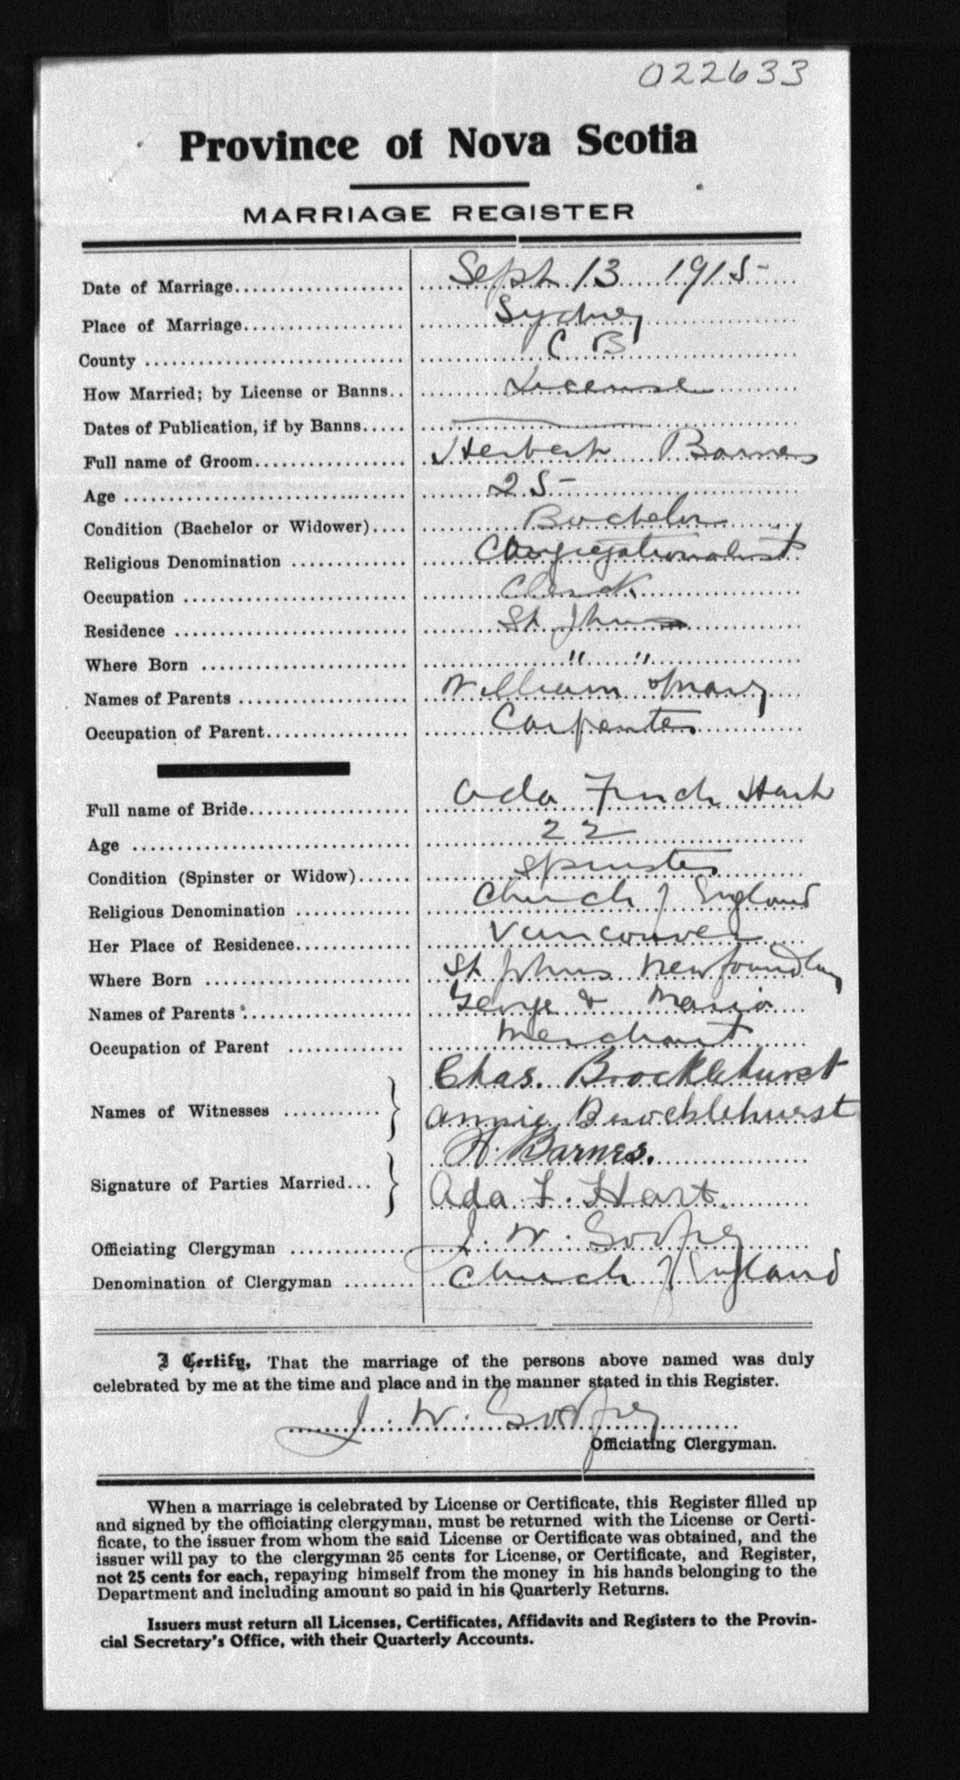 022633
Province of Nova Scotia
MARRIAGE REGISTER
Date of Marriage................... Sept 13 1915
Place of Marriage.................. Sydney
County ............................ C B
How Married; by License or Banns.. License
Dates of Publication, if by Banns.....
Full name of Groom................ Herbert Barnes
Age ............................... 25
Condition (Bachelor or Widower).... Bachelor
Religious Denomination ............. Congregationalist
Occupation ........................ Clerk
Residence ......................... St Johns
Where Born ....................... " "
Names of Parents .................. William & Mary
Occupation of Parent................ Carpenter
Full name of Bride.................. Ada Finch Hart
Age ............................... 22
Condition (Spinster or Widow)...... Spinster
Religious Denomination ............. Church of England
Her Place of Residence............. Vancouver
Where Born ....................... St Johns Newfoundland
Names of Parents .................. George &
Occupation of Parent ............. Merchant
Chas. Brocklehurst
Names of Witnesses ........... Annie Brocklehurst
H. Barnes.
Signature of Parties Married... Ada F. Hart
Officiating Clergyman ............. J. W. Godfrey
Denomination of Clergyman ........ Church of England
I Certify, That the marriage of the persons above named was duly
celebrated by me at the time and place and in the manner stated in this Register.
J. W. Godfrey
Officiating Clergyman.
When a marriage is celebrated by License or Certificate, this Register filled up
and signed by the officiating clergyman, must be returned with the License or Certi-
ficate, to the issuer from whom the said License or Certificate was obtained, and the
issuer will pay to the clergyman 25 cents for License, or Certificate, and Register,
not 25 cents for each, repaying himself from the money in his hands belonging to the
Department and including amount so paid in his Quarterly Returns.
Issuers must return all Licenses, Certificates, Affidavits and Registers to the Provin-
cial Secretary's Office, with their Quarterly Accounts.